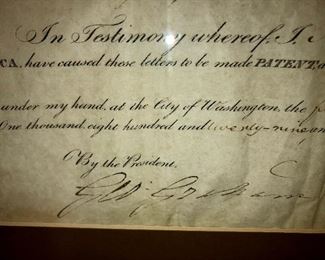 In Testimony whereof, I,
CA, have caused these letters to be made PATENT, a
under my hand, at the City of Washington, the
One thousand eight hundred and twenty-nine, an
By the President.
Graham